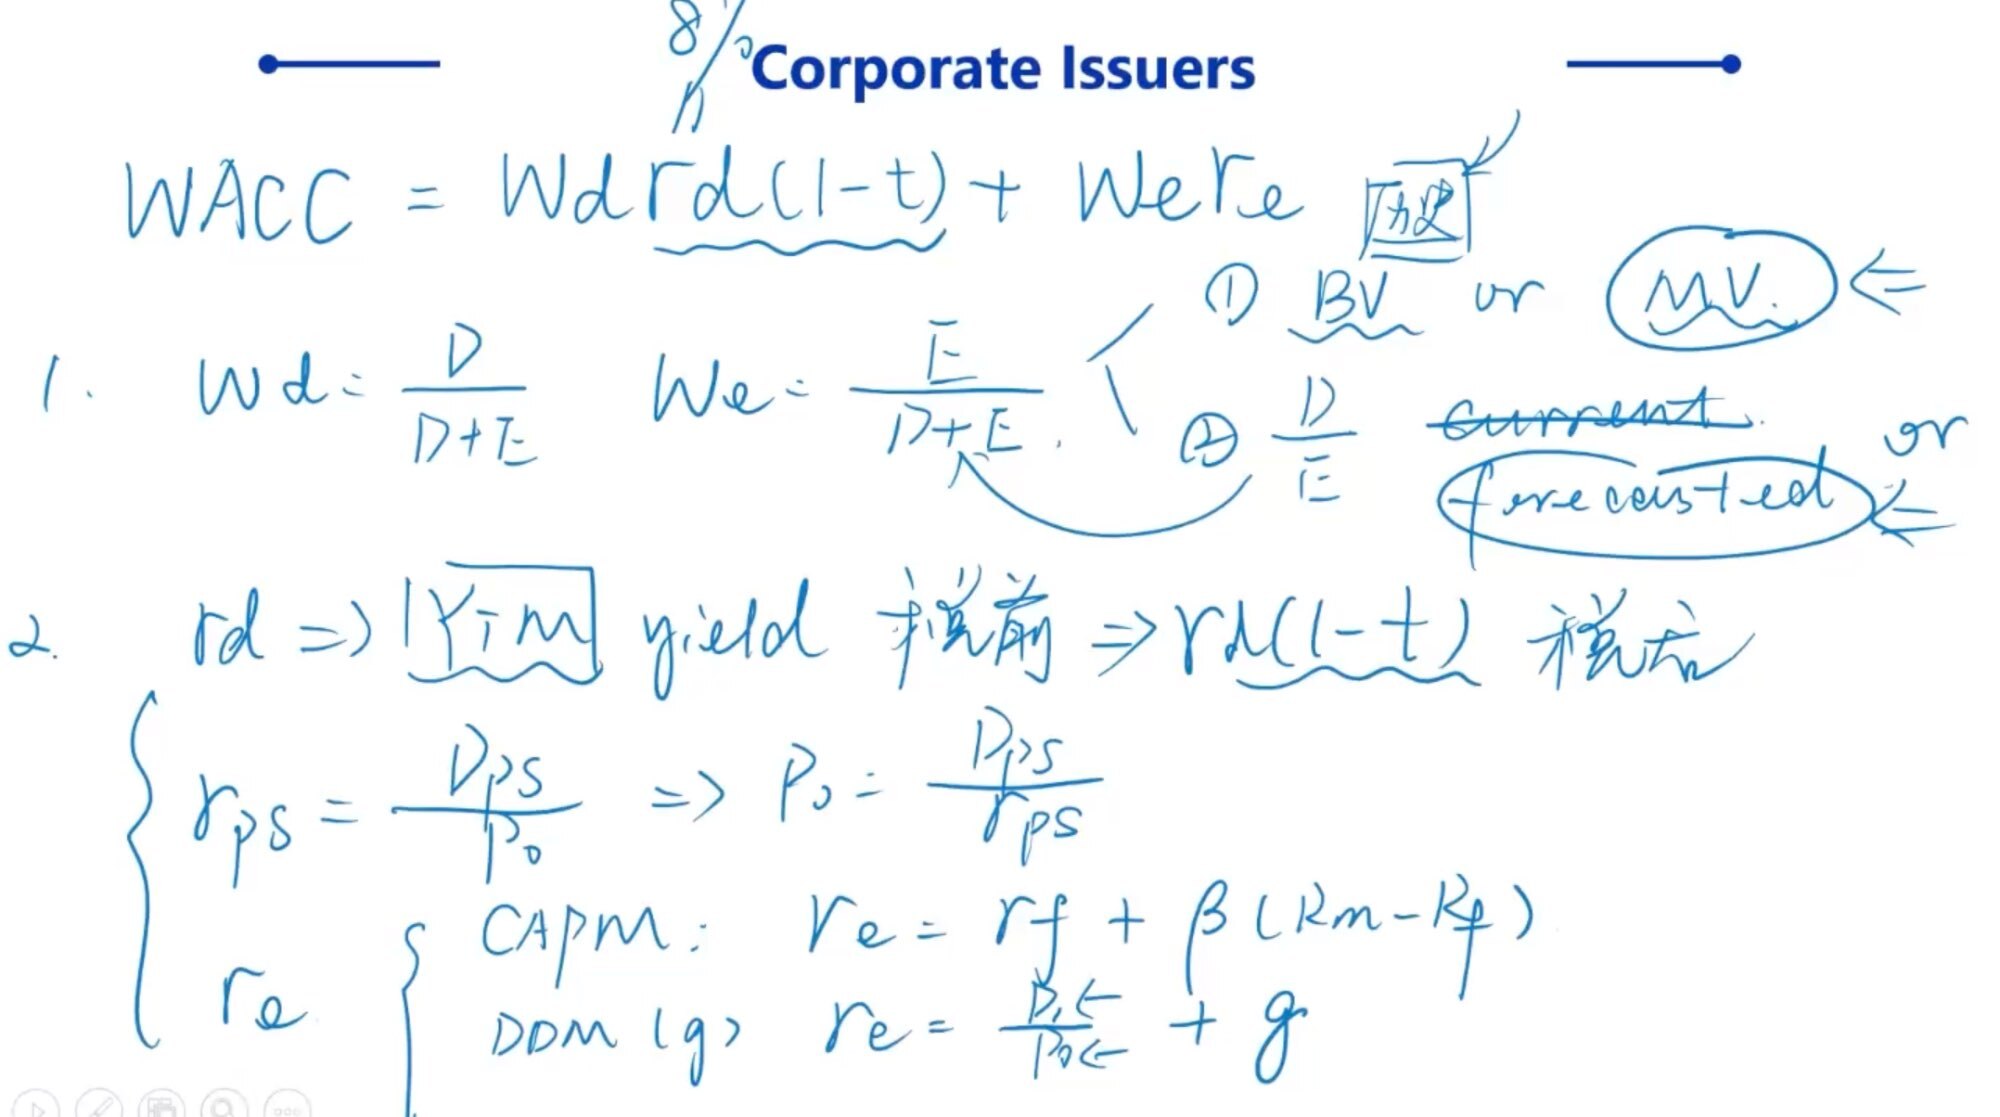 8%
Corporate Issuers
WACC = Wd rd (1-t) + We re 历史
① BV or M.V.
1. Wd = D/(D+E) We = E/(D+E). ② D/E current or
forecasted
2. rd => YTM yield 税前 => rd(1-t) 税后
rps = Dps/P0 => P0 = Dps/rps
CAPM: re = rf + β(Rm-Rf)
re
DDM (g) re = D1/P0 + g